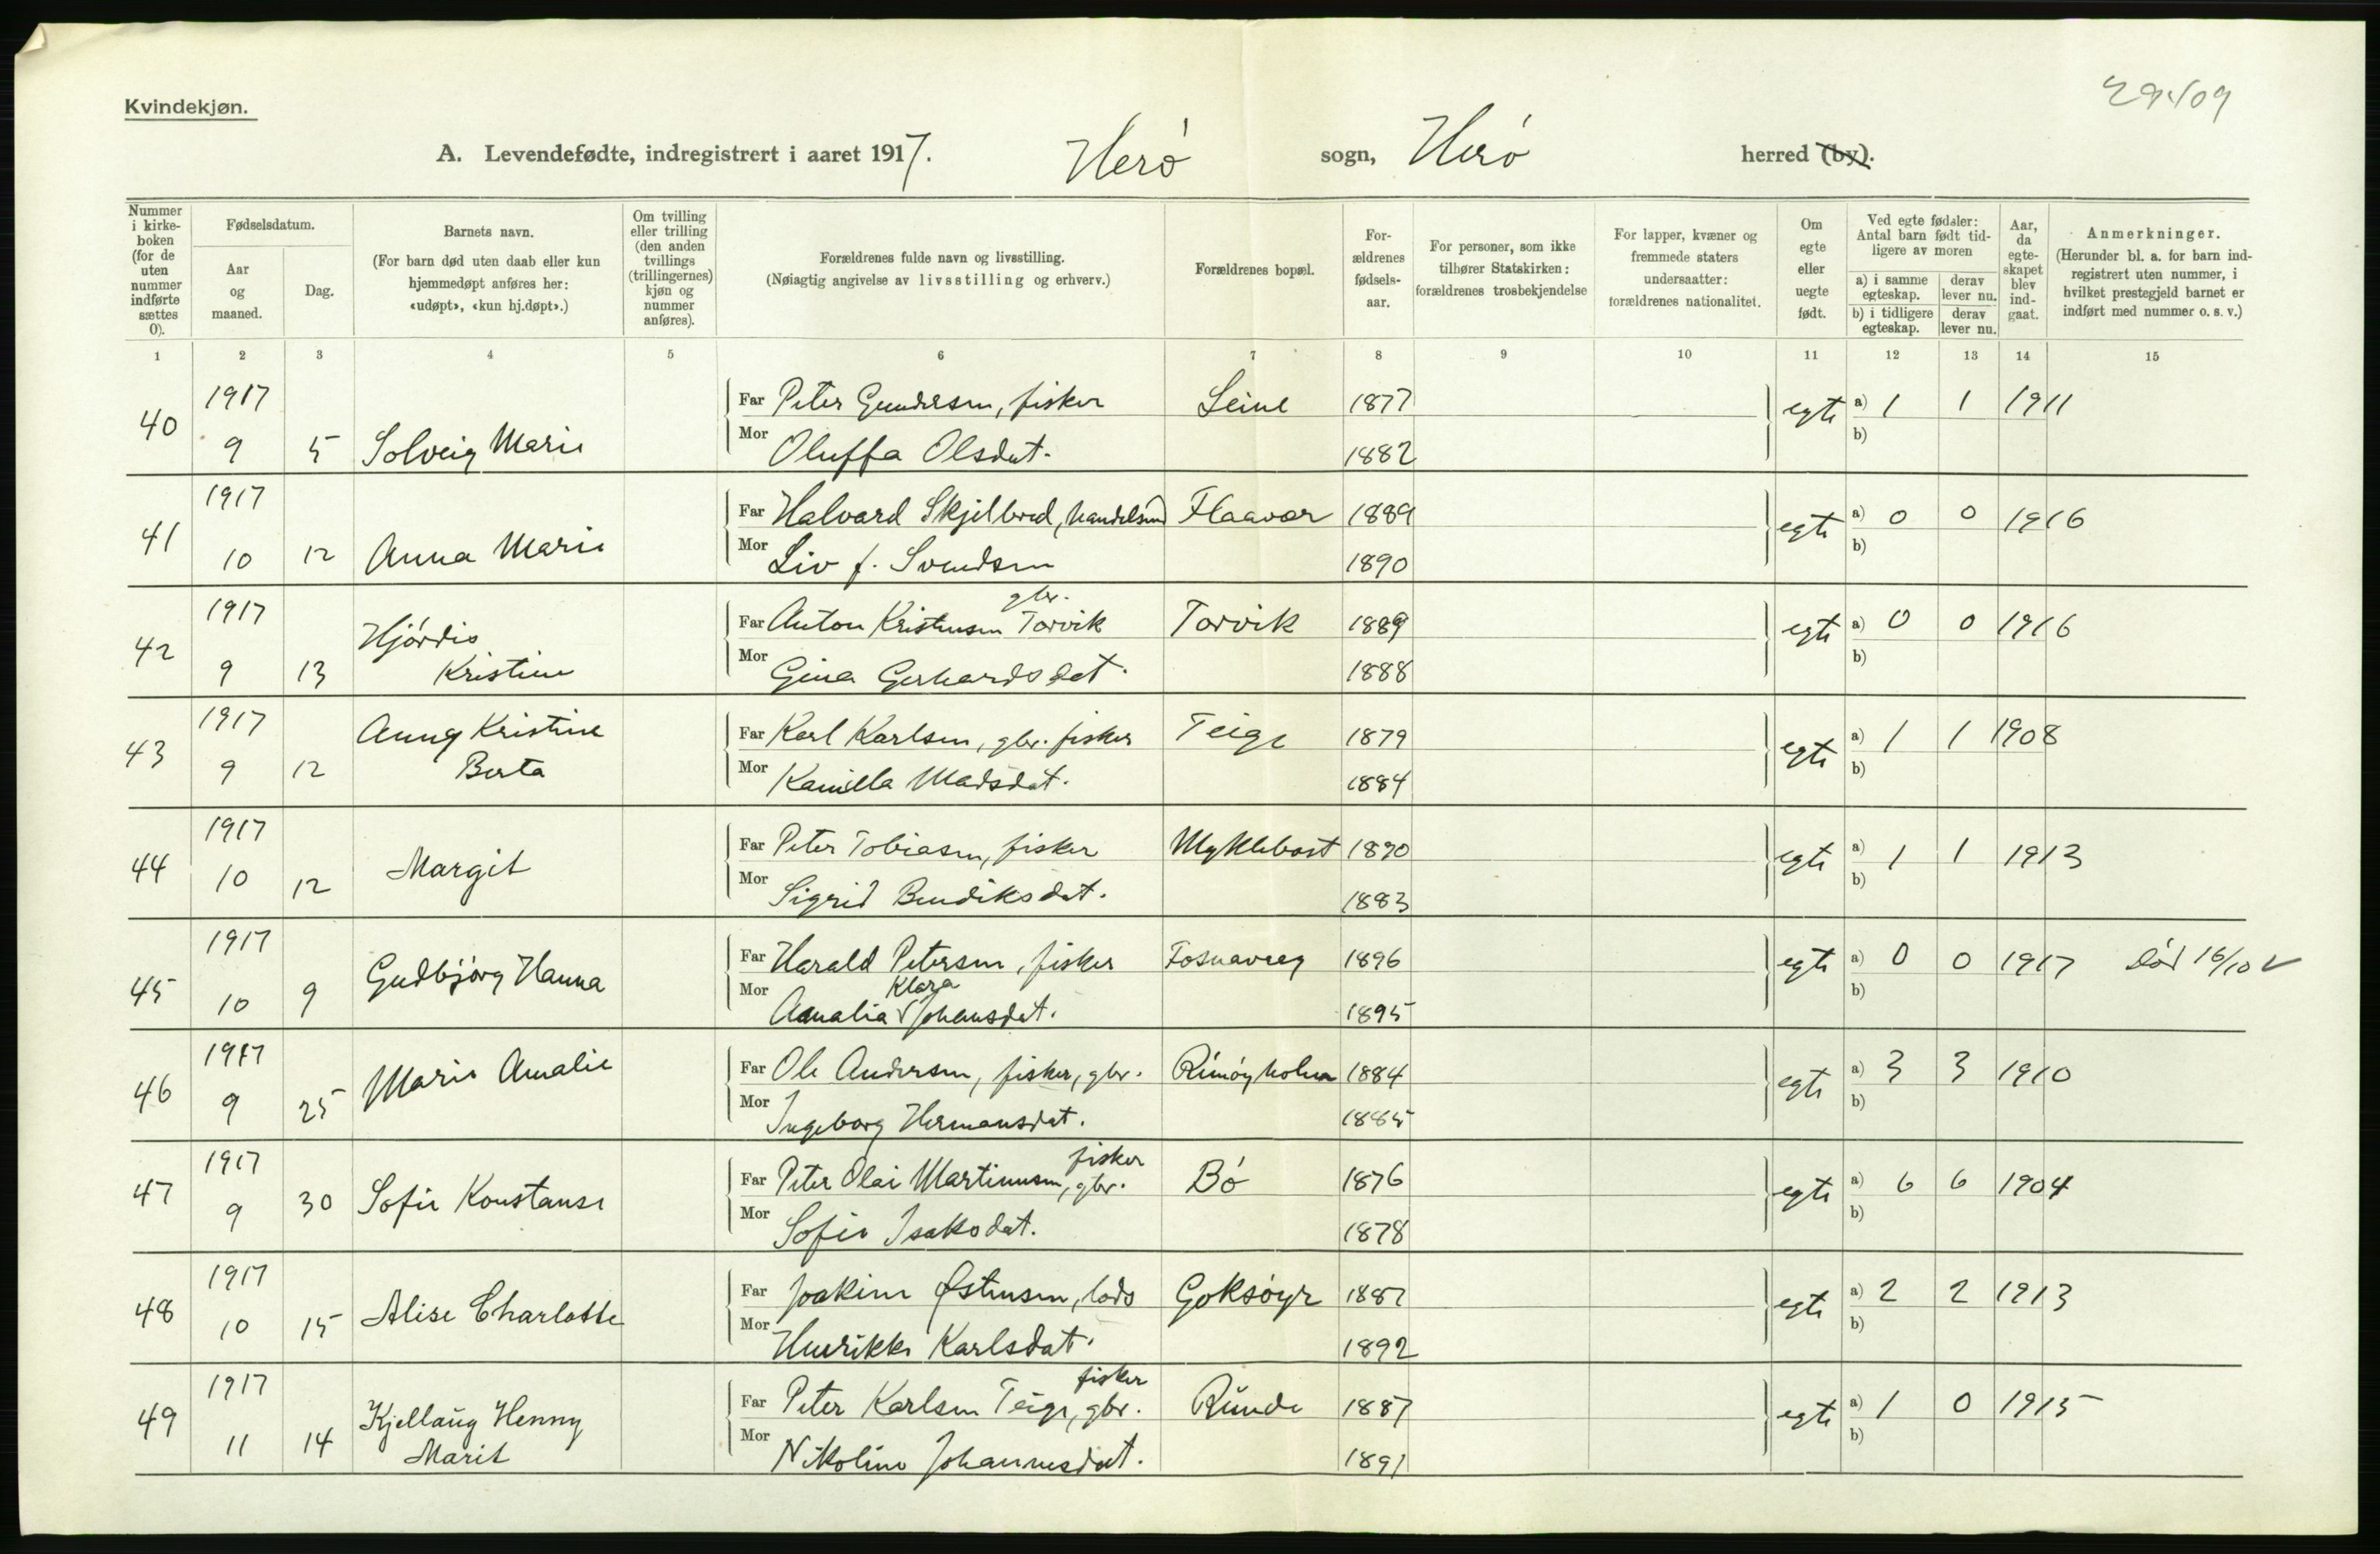 Kvindekjøn.
A. Levendefødte, indregistrert i aaret 1917. Herö sogn, Herö herred (by).
Nummer i kirke-boken (for de uten nummer indførte sættes 0).
Fødselsdatum.
Aar og maaned.
Dag.
Barnets navn.
(For barn død uten daab eller kun hjemmedøpt anføres her: «udøpt», «kun hj.døpt».)
Om tvilling eller trilling (den anden tvillings (trillingernes) kjøn og nummer anføres).
Forældrenes fulde navn og livsstilling.
(Nøiagtig angivelse av livsstilling og erhverv.)
Forældrenes bopæl.
For-ældrenes fødsels-aar.
For personer, som ikke tilhører Statskirken: forældrenes trosbekjendelse
For lapper, kvæner og fremmede staters undersaatter: forældrenes nationalitet.
Om egte eller uegte født.
Ved egte fødsler: Antal barn født tid-ligere av moren
a) i samme egteskap.
derav lever nu.
b) i tidligere egteskap.
derav lever nu.
Aar, da egte-skapet blev ind-gaat.
Anmerkninger.
(Herunder bl. a. for barn ind-registrert uten nummer, i hvilket prestegjeld barnet er indført med nummer o. s. v.)
1 2 3 4 5 6 7 8 9 10 11 12 13 14 15
40 1917 9 5 Solveig Marie
Far Peter Gundersen, fisker Leine 1877 egte a) 1 1 1911
Mor Oluffa Olsdat. 1882 b)
41 1917 10 12 Anna Marie
Far Halvard Skjelbred, handelsmd Flaavær 1889 egte a) 0 0 1916
Mor Liv f. Svendsen 1890 b)
42 1917 9 13 Hjördis Kristine
gbr.
Far Anton Kristensen Torvik Torvik 1889 egte a) 0 0 1916
Mor Gina Gerhardsdat. 1888 b)
43 1917 9 12 Anny Kristine Berta
Far Karl Karlsen, gbr. fisker Teige 1879 egte a) 1 1 1908
Mor Kamilla Madsdat. 1884 b)
44 1917 10 12 Margit
Far Peter Tobiasen, fisker Myklebost 1890 egte a) 1 1 1913
Mor Sigrid Bendiksdat. 1883 b)
45 1917 10 9 Gudbjörg Hanna
Far Harald Petersen, fisker Fosnavaag 1896 egte a) 0 0 1917 Död 16/10 ✓
Klara
Mor Amalia Johansdat. 1895 b)
46 1917 9 25 Marie Amalie
Far Ole Andersen, fisker, gbr. Rimöyholm 1884 egte a) 3 3 1910
Mor Ingeborg Hermansdat. 1885 b)
47 1917 9 30 Sofie Konstanse
fisker
Far Peter Olai Martinusen, gbr. Bö 1876 egte a) 6 6 1904
Mor Sofie Isaksdat. 1878 b)
48 1917 10 15 Alise Charlotte
Far Joakim Østensen, lods Goksöyr 1887 egte a) 2 2 1913
Mor Henrikke Karlsdat. 1892 b)
49 1917 11 14 Kjellaug Henny Marit
fisker
Far Peter Karlsen Teige, gbr. Runde 1887 egte a) 1 0 1915
Mor Nikoline Johannesdat. 1891 b)